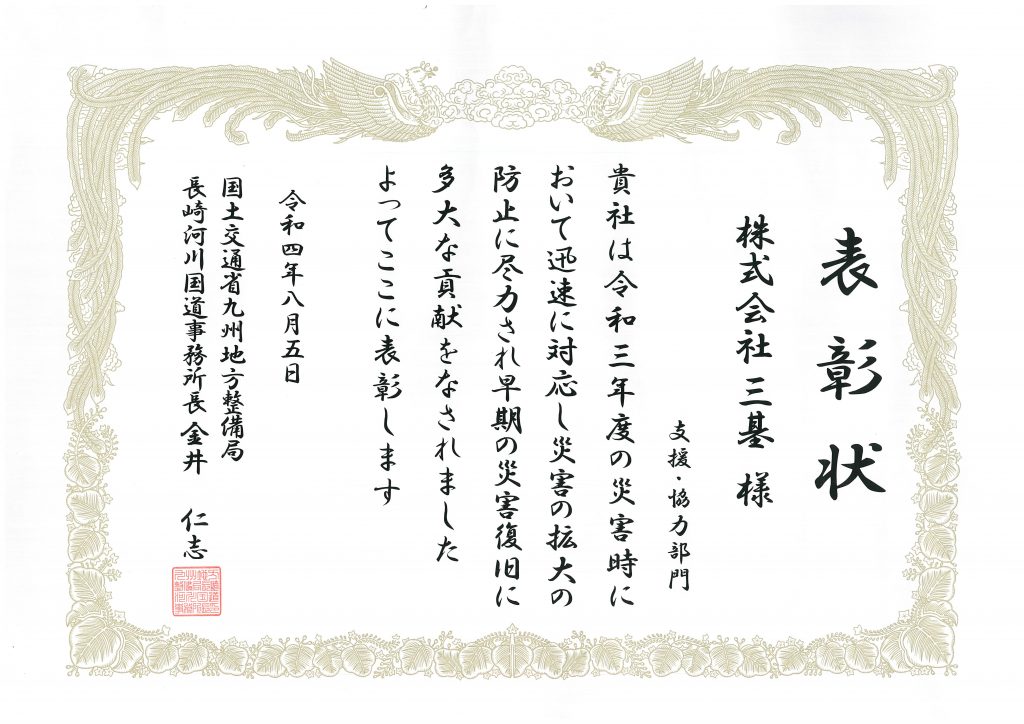 表彰状
株式会社 三基 様
支援・協力部門
貴社は令和三年度の災害時に
おいて迅速に対応し災害の拡大の
防止に尽力され早期の災害復旧に
多大な貢献をなされました
よってここに表彰します
令和四年八月五日
国土交通省九州地方整備局
長崎河川国道事務所長 金井 仁志